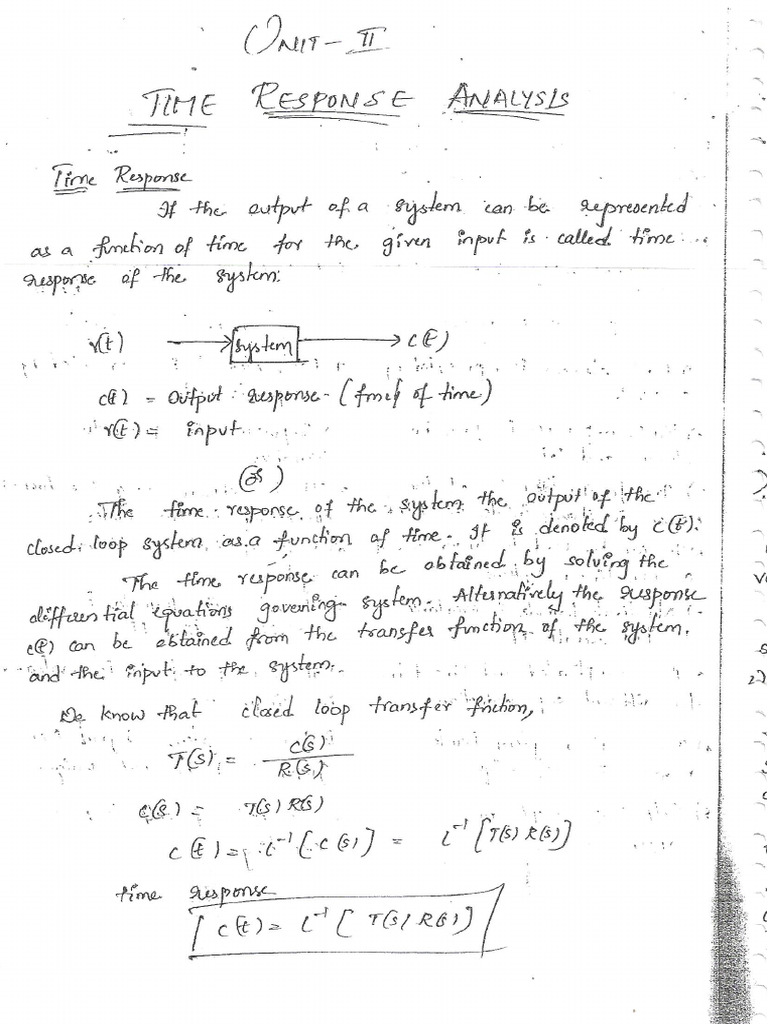 UNIT - II
TIME RESPONSE ANALYSIS
Time Response
If the output of a system can be represented
as a function of time for the given input is called time
response of the system.
r(t) → system → c(t)
c(t) = output response - (fmcf of time)
r(t) = input
(or)
The time response of the system the output of the
closed loop system as a function of time. It is denoted by c(t).
The time response can be obtained by solving the
differential equations governing system. Alternatively the response
c(t) can be obtained from the transfer function of the system.
and the input to the system.
We know that closed loop transfer fnction,
T(s) = C(s) / R(s)
C(s) = T(s) R(s)
c(t) = L⁻¹[C(s)] = L⁻¹[T(s) R(s)]
time response
c(t) = L⁻¹[T(s) R(s)]